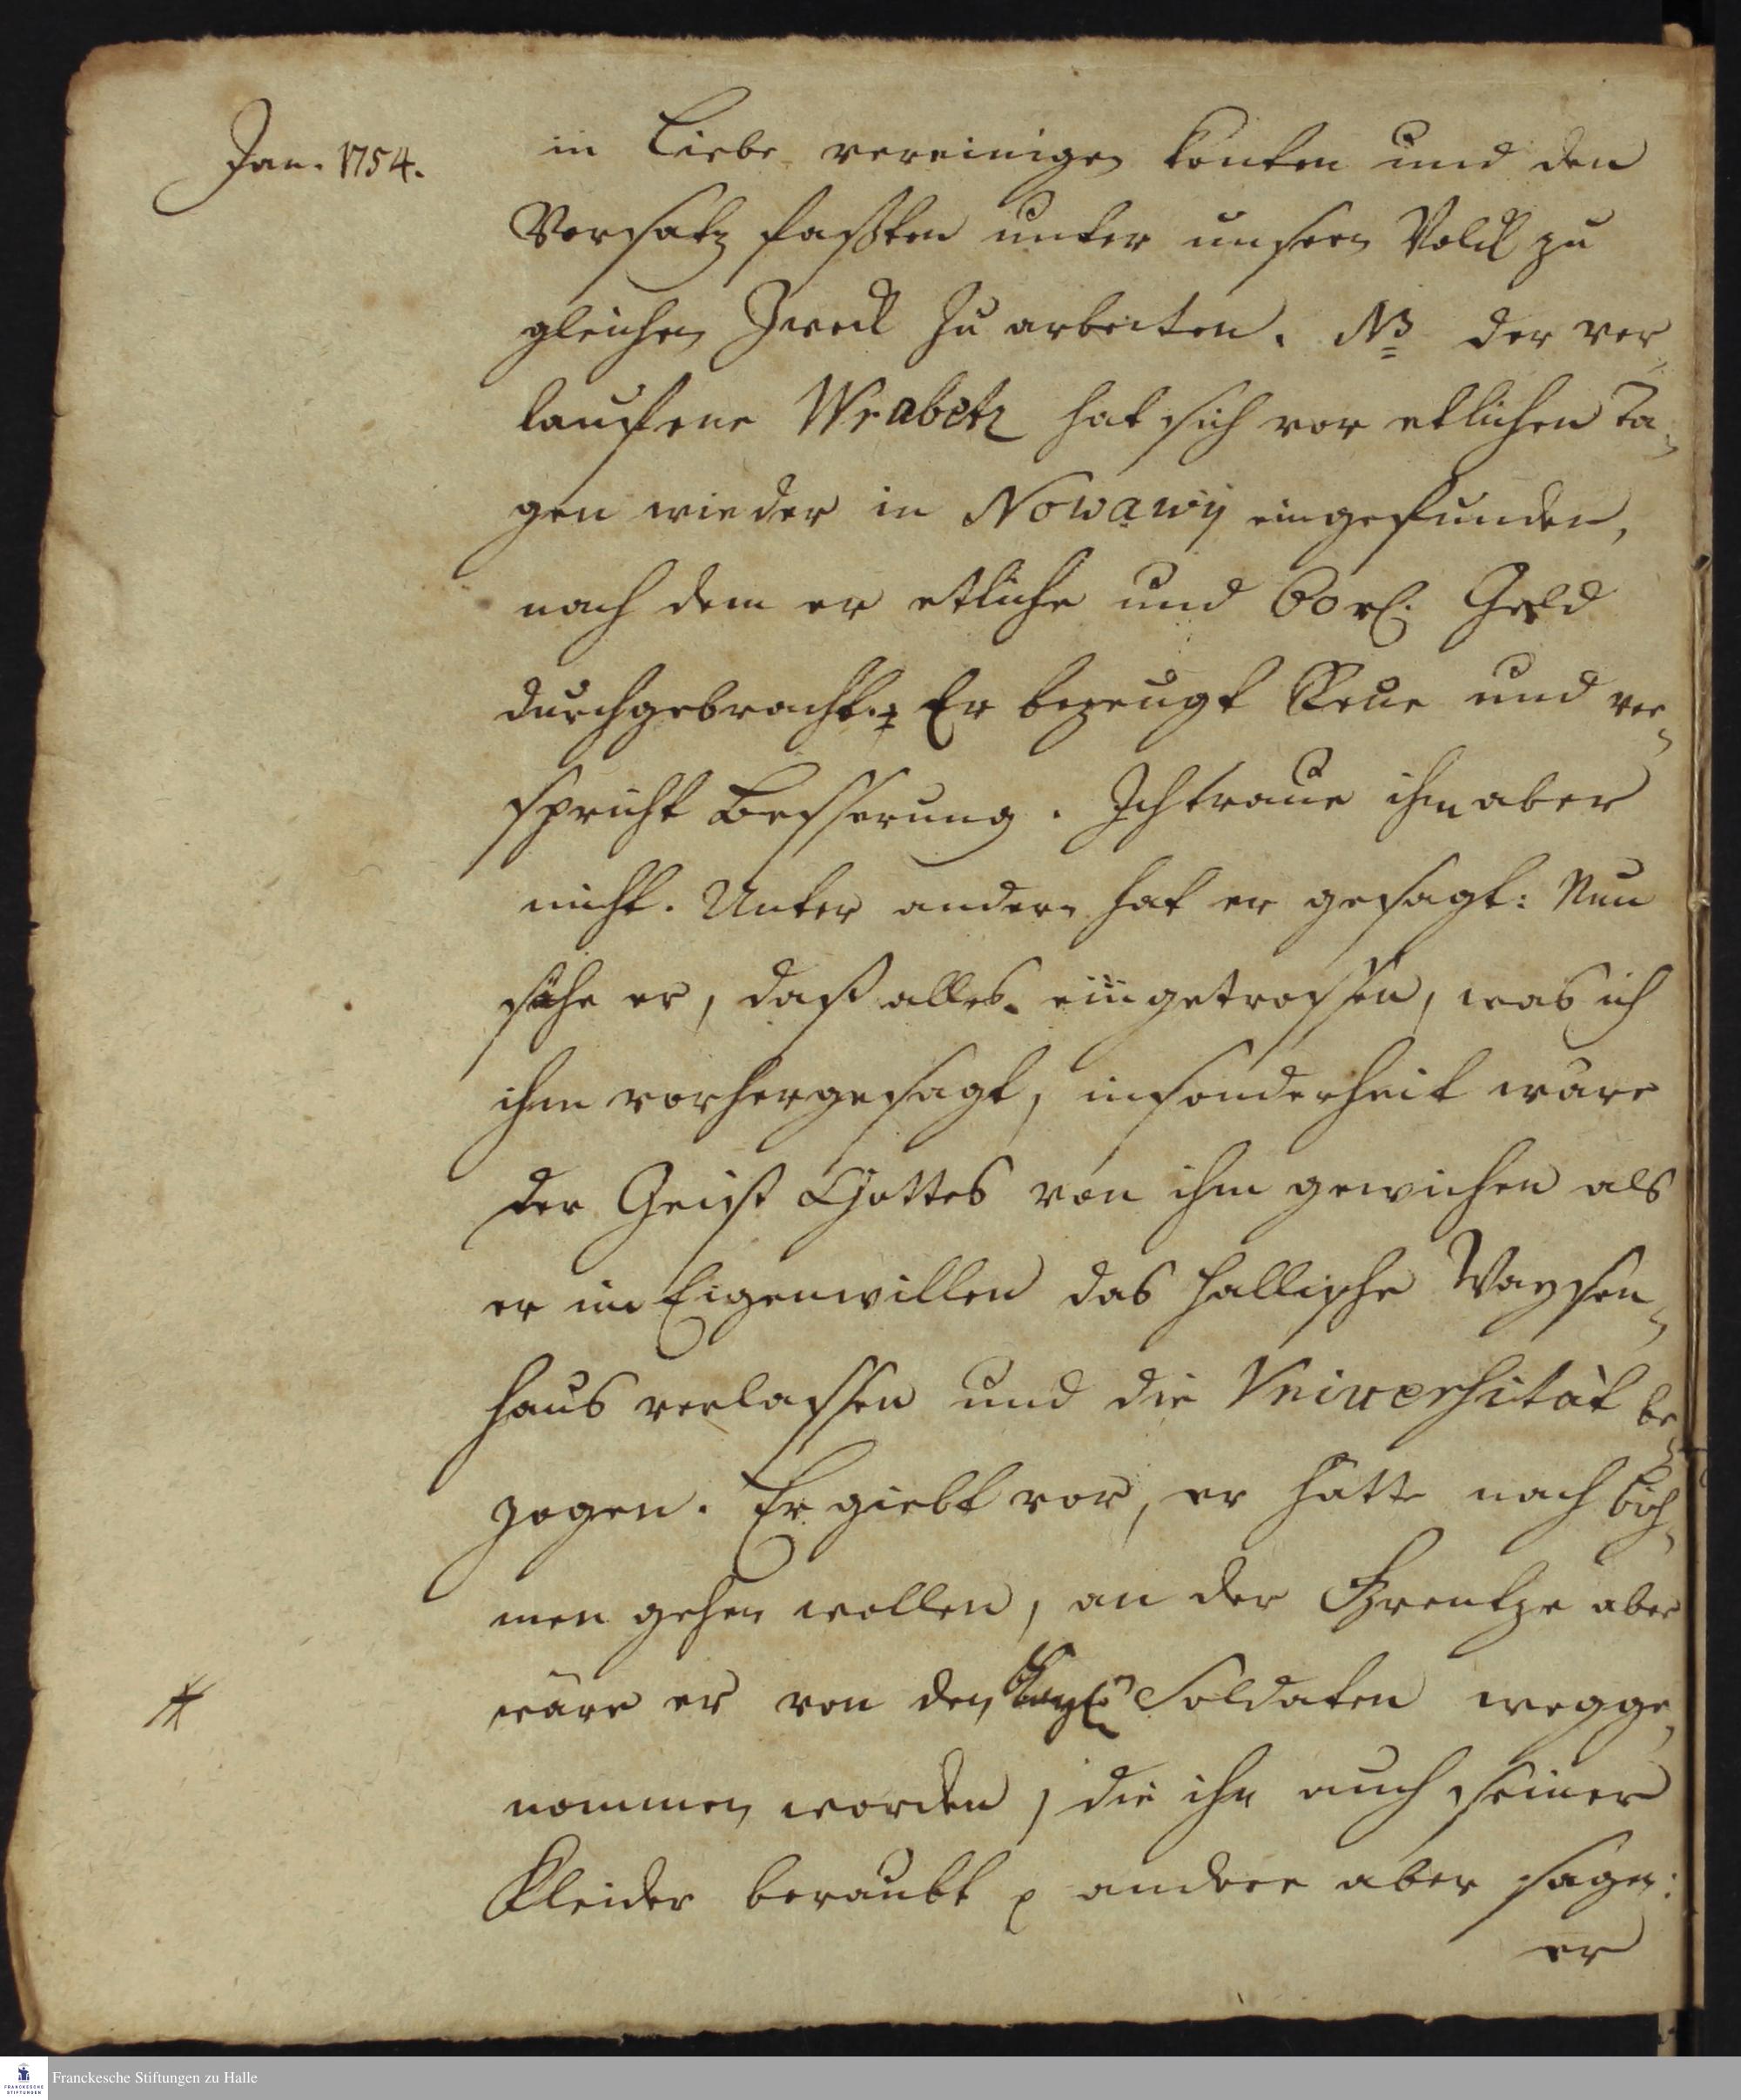 Jan. 1754.
in Liebe vereinigen konten und den
Vorsatz faßten unter unsern Volck zu
gleichen Zweck zu arbeiten. NB der ver
laufene Wrabetz hat sich vor etlichen Ta-
gen wieder in Nowawÿ eingefunden,
nach dem er etliche und 60 rl. Geld
durchgebracht. Er bezeugt Reue und ver-
spricht Besserung. Ich traue ihm aber
nicht. Unter andern hat er gesagt: Nun
sähe er, daß alles eingetroffen, was ich
ihm vorhergesagt, insonderheit wäre
der Geist Gottes von ihm gewichen als
er im Eigenwillen das Hallische Waysen-
haus verlassen und die Vniversität be-
zogen. Er giebt vor, er hätte nach Böh-
men gehen wollen, an der Grentze aber
wäre er von den Soldaten wegge-
nommen worden, die ihn auch seiner
Kleider beraubt andere aber sagen:
er
Franckesche Stiftungen zu Halle
FRANCKESCHE STIFTUNGEN